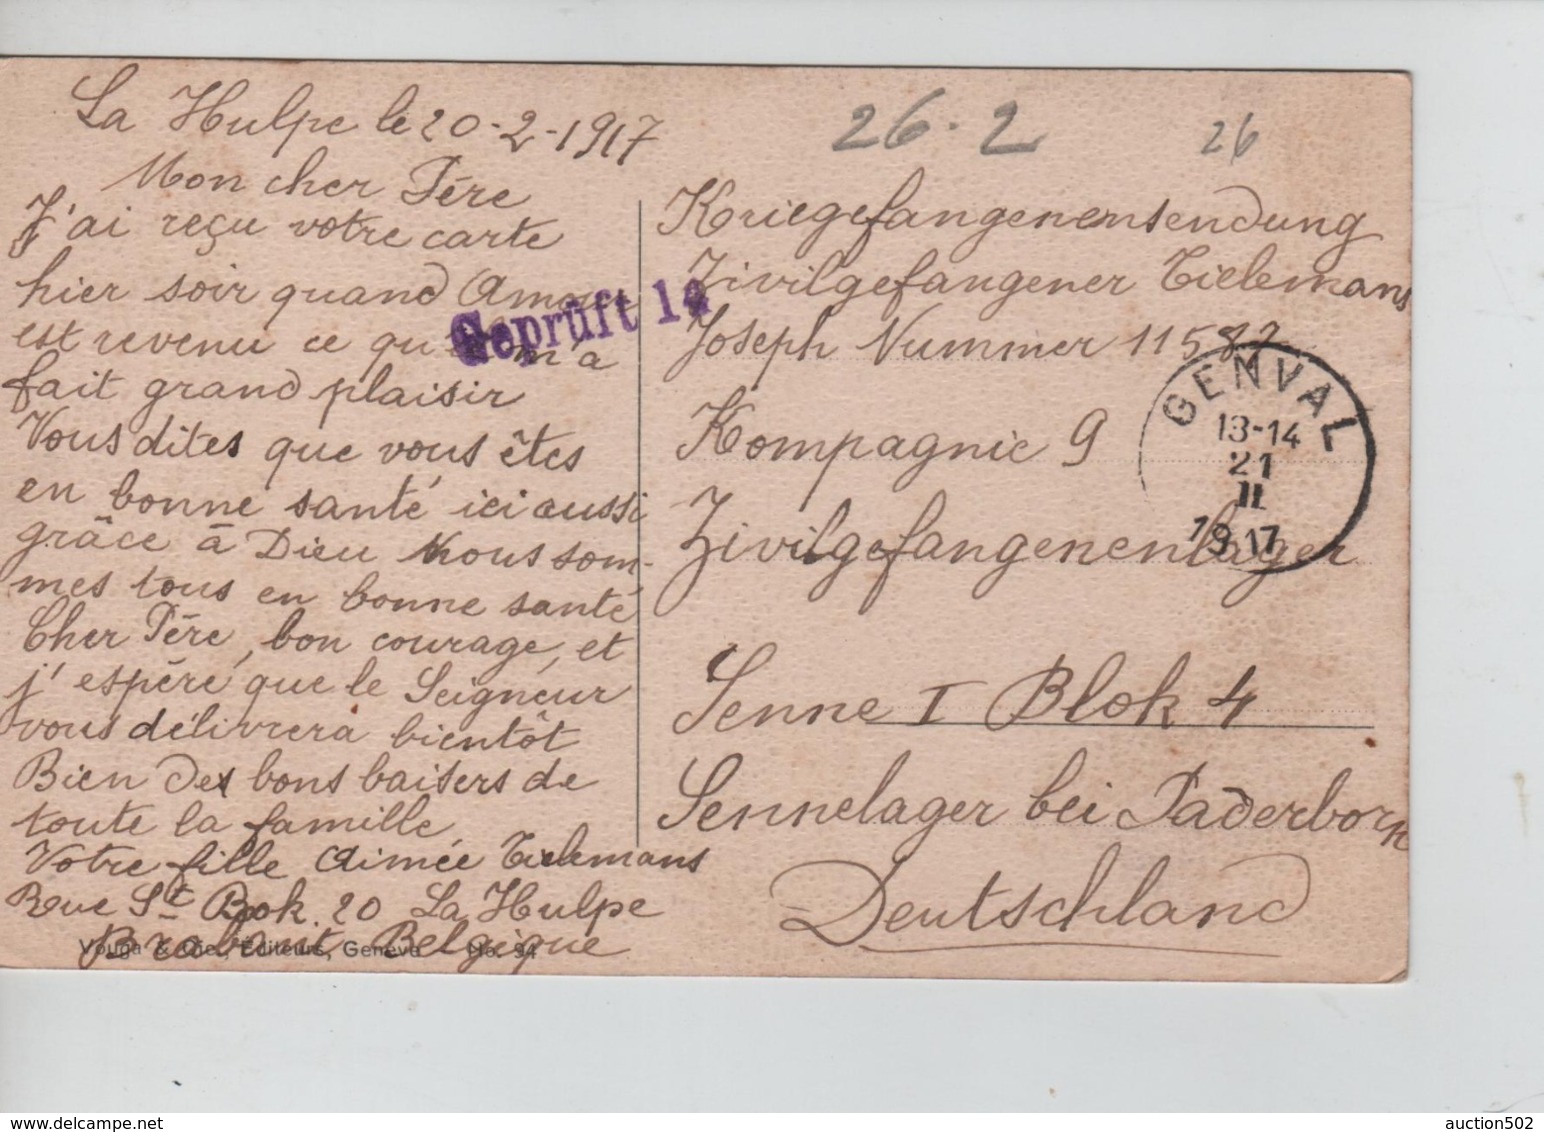 La Hulpe le 20-2-1917
Mon cher Père
J'ai reçu votre carte
hier soir quand
est revenu ce qui m'a
fait grand plaisir
Vous dites que vous êtes
en bonne santé, ici aussi
grâce à Dieu Nous som-
mes tous en bonne santé
Cher Père, bon courage, et
j'espère que le Seigneur
vous délivrera bientôt
Bien des bons baisers de
toute la famille
Votre fille Aimée Tielemans
Rue St 20 La Hulpe
Brabant, Belgique
Vouga & Cie, Éditeurs, Genève No. 94
Geprüft 14
26.2 26
Kriegefangenensendung
Zivilgefangener Tielemans
Joseph Nummer 11582
Kompagnie 9
Zivilgefangenenlager
Senne I Blok 4
Sennelager bei Paderborn
Deutschland
GENVAL
13-14
21
II
1917
auction502